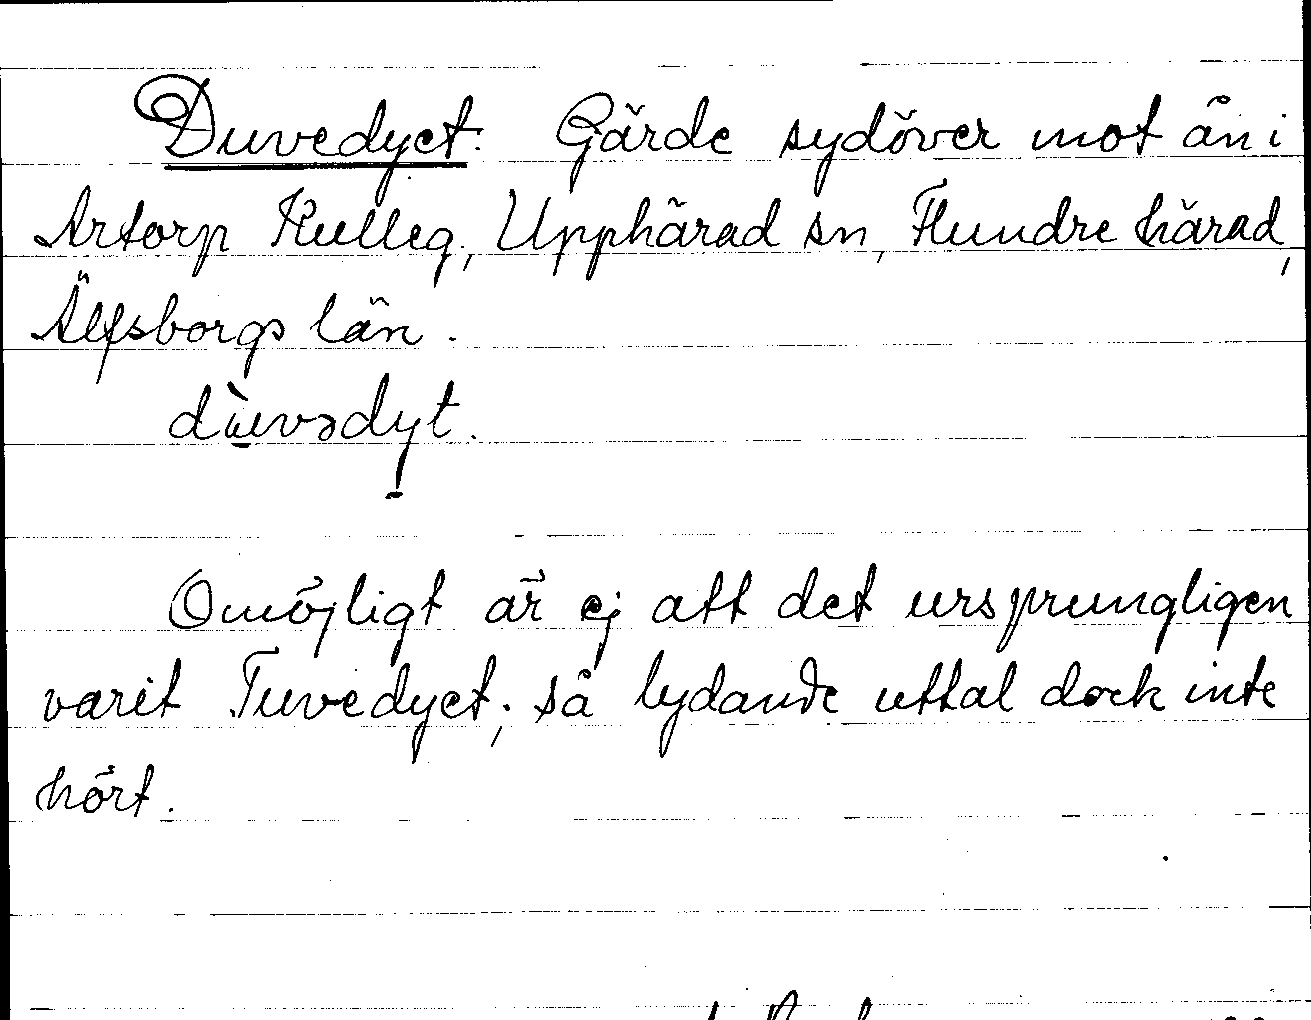 Duvedyet. Gärde sydöver mot ån i
Artorp Kulleg, Upphärad sn, Flundre härad,
Älfsborgs län.
dùvədyt.
Omöjligt är ej att det ursprungligen
varit Tuvedyet; så lydande uttal dock inte
hört.